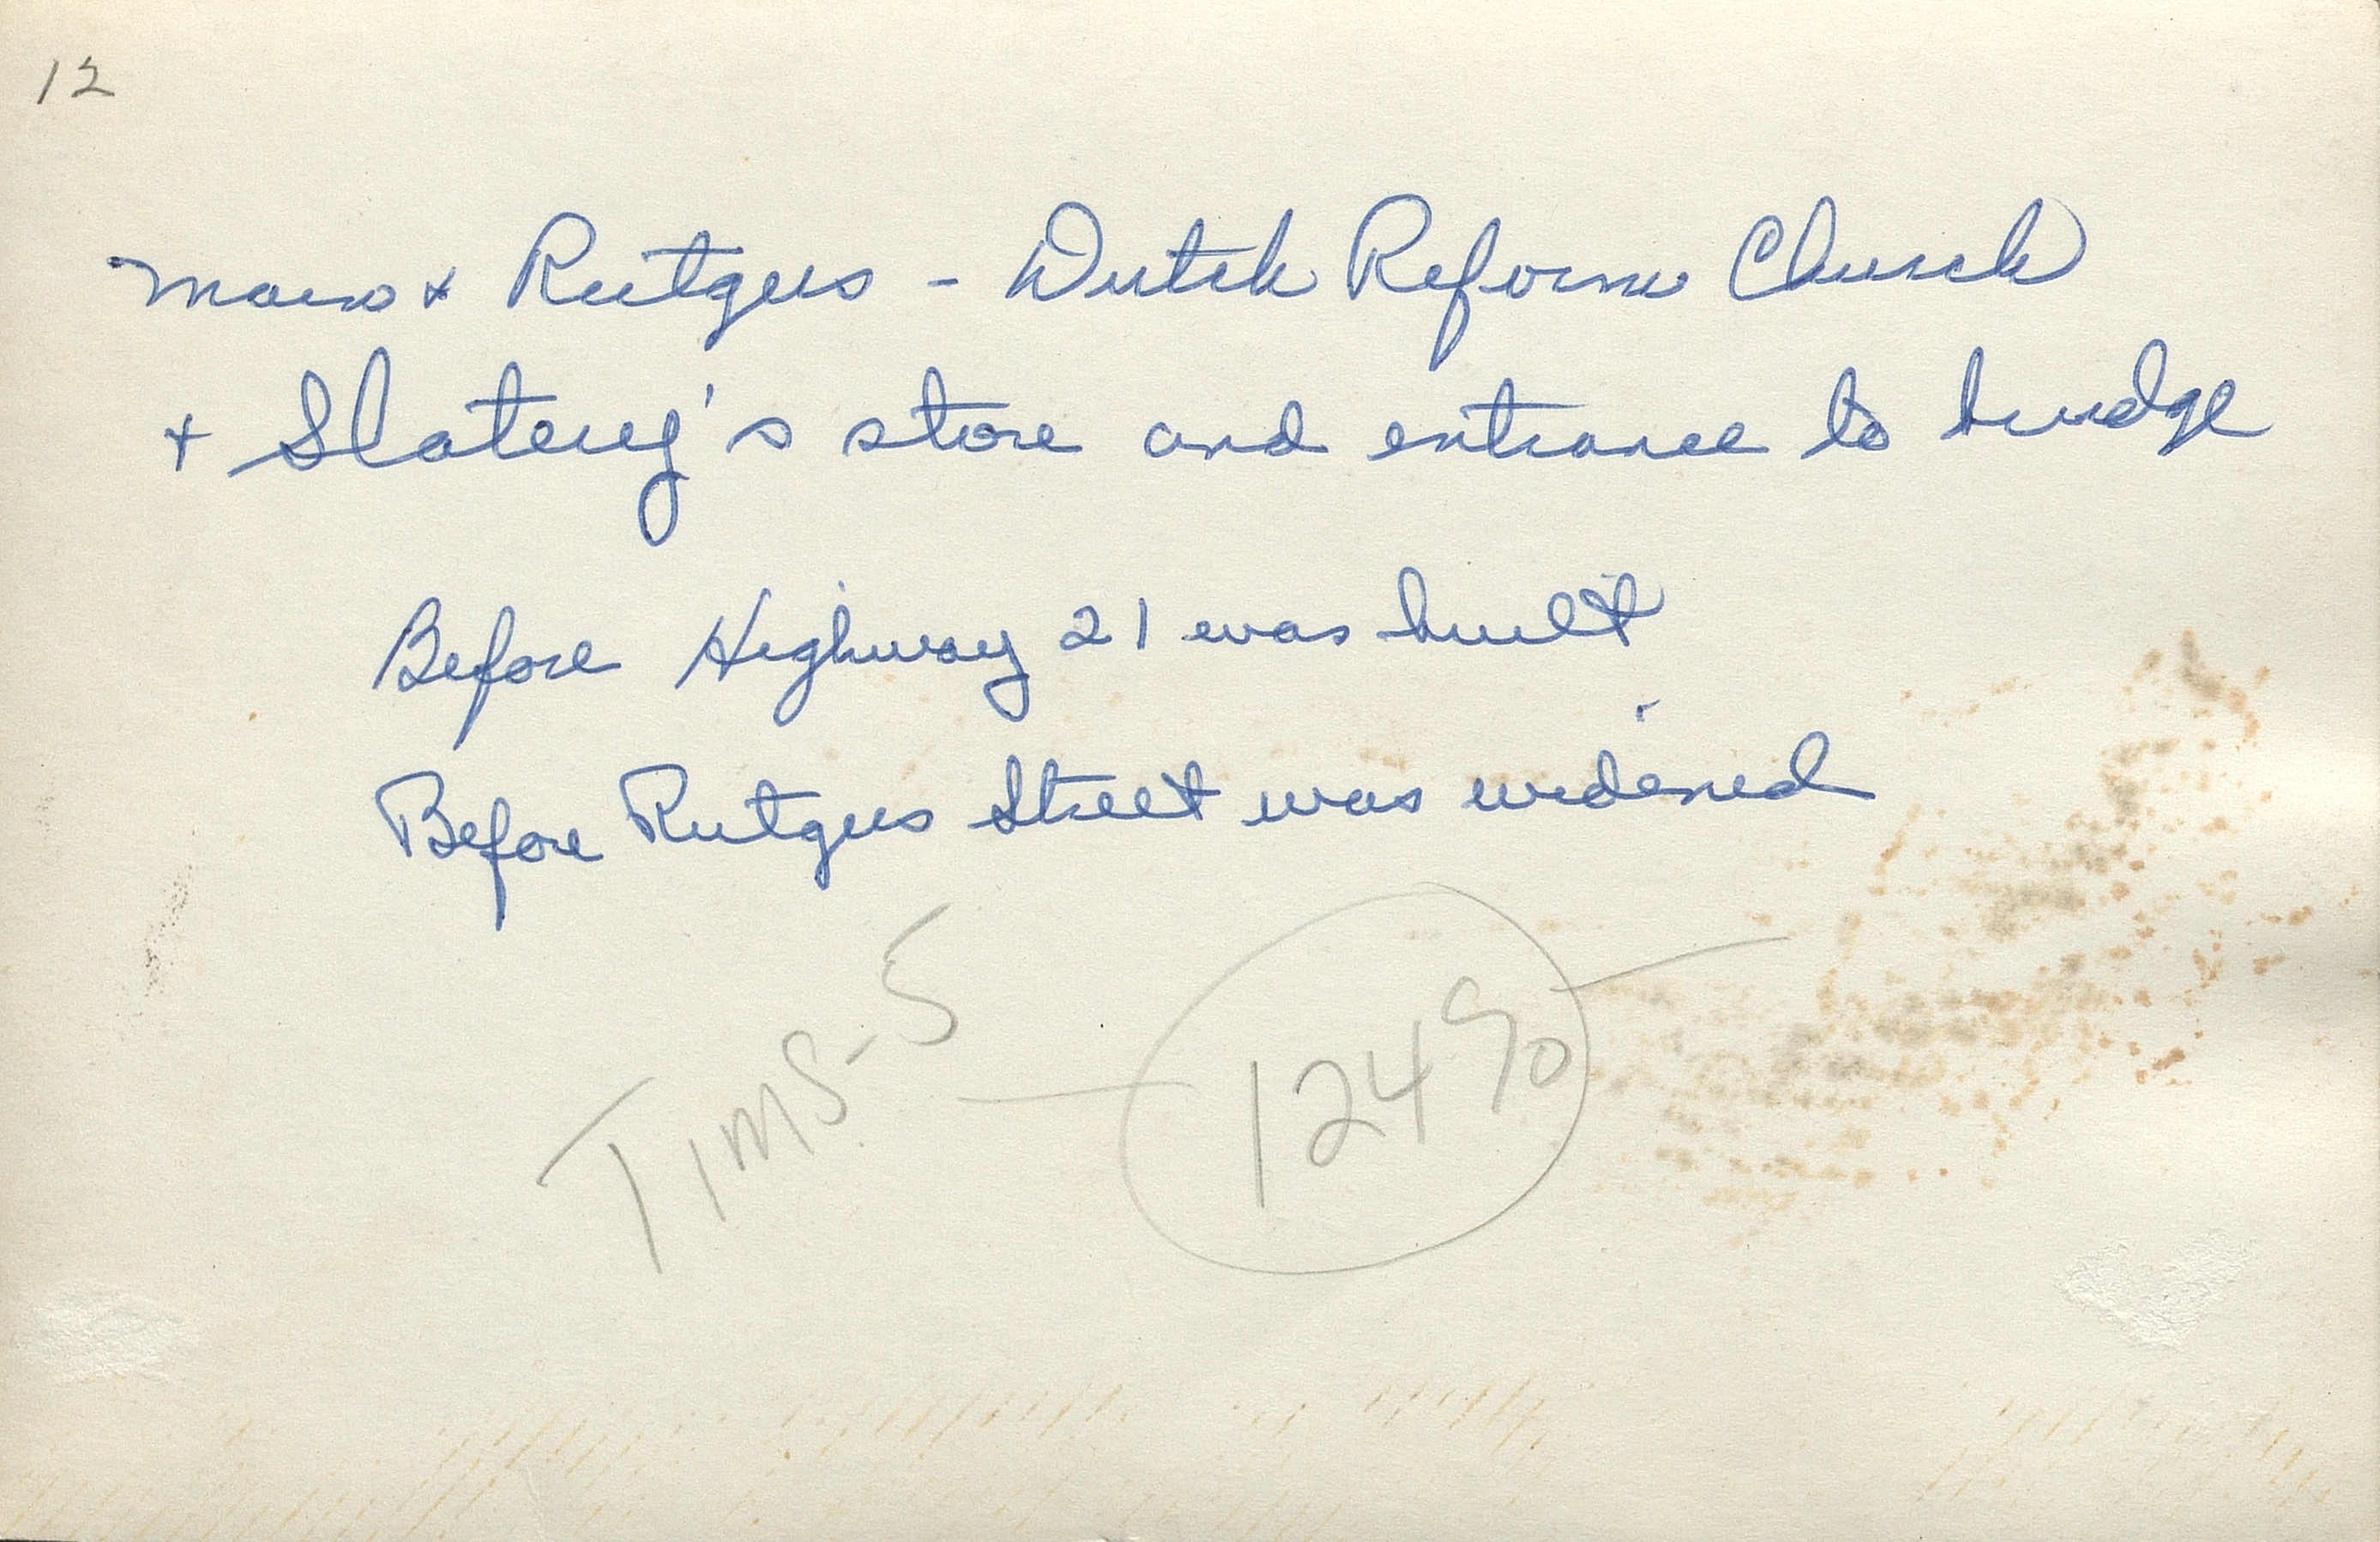 12
Main & Rutgers - Dutch Reform Church
+ Slatery's store and entrance to bridge
Before Highway 21 was built
Before Rutgers Street was widened
TIMS-5
12490